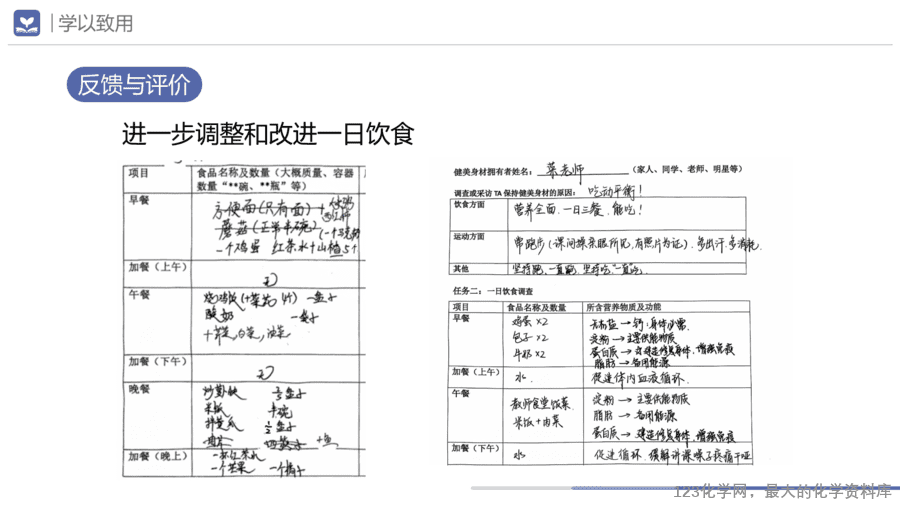 学以致用
反馈与评价
进一步调整和改进一日饮食
项目
食品名称及数量（大概质量、容器
数量“**碗、**瓶”等）
早餐
方便面(只有面)+
蘑菇(正常半碗)
一个鸡蛋 红茶水+山楂5个
加餐（上午）
无
午餐
一盒子
酸奶 一袋子
加餐（下午）
无
晚餐
半碗
加餐（晚上）
一个芒果 一个橘子
健美身材拥有者姓名： 蔡老师 （家人、同学、老师、明星等）
调查或采访 TA 保持健美身材的原因： 吃动平衡！
饮食方面
营养全面，一日三餐，能吃！
运动方面
常跑步(课间操亲眼所见,有照片为证)．多出汗,多消耗.
其他
坚持跑,一直跑,坚持吃,一直吃.
任务二：一日饮食调查
项目 食品名称及数量 所含营养物质及功能
早餐
鸡蛋 ×2
包子 ×2
牛奶 ×2
无机盐→钙：身体必需
淀粉→主要供能物质
蛋白质→建造修复身体，增强免疫
脂肪→备用能源
加餐（上午） 水. 促进体内血液循环.
午餐
教师食堂饭菜
米饭+肉菜
淀粉→主要供能物质
脂肪→备用能源
蛋白质→建造修复身体，增强免疫
加餐（下午） 水 促进循环，缓解讲课嗓子疼痛干哑
123化学网，最大的化学资料库